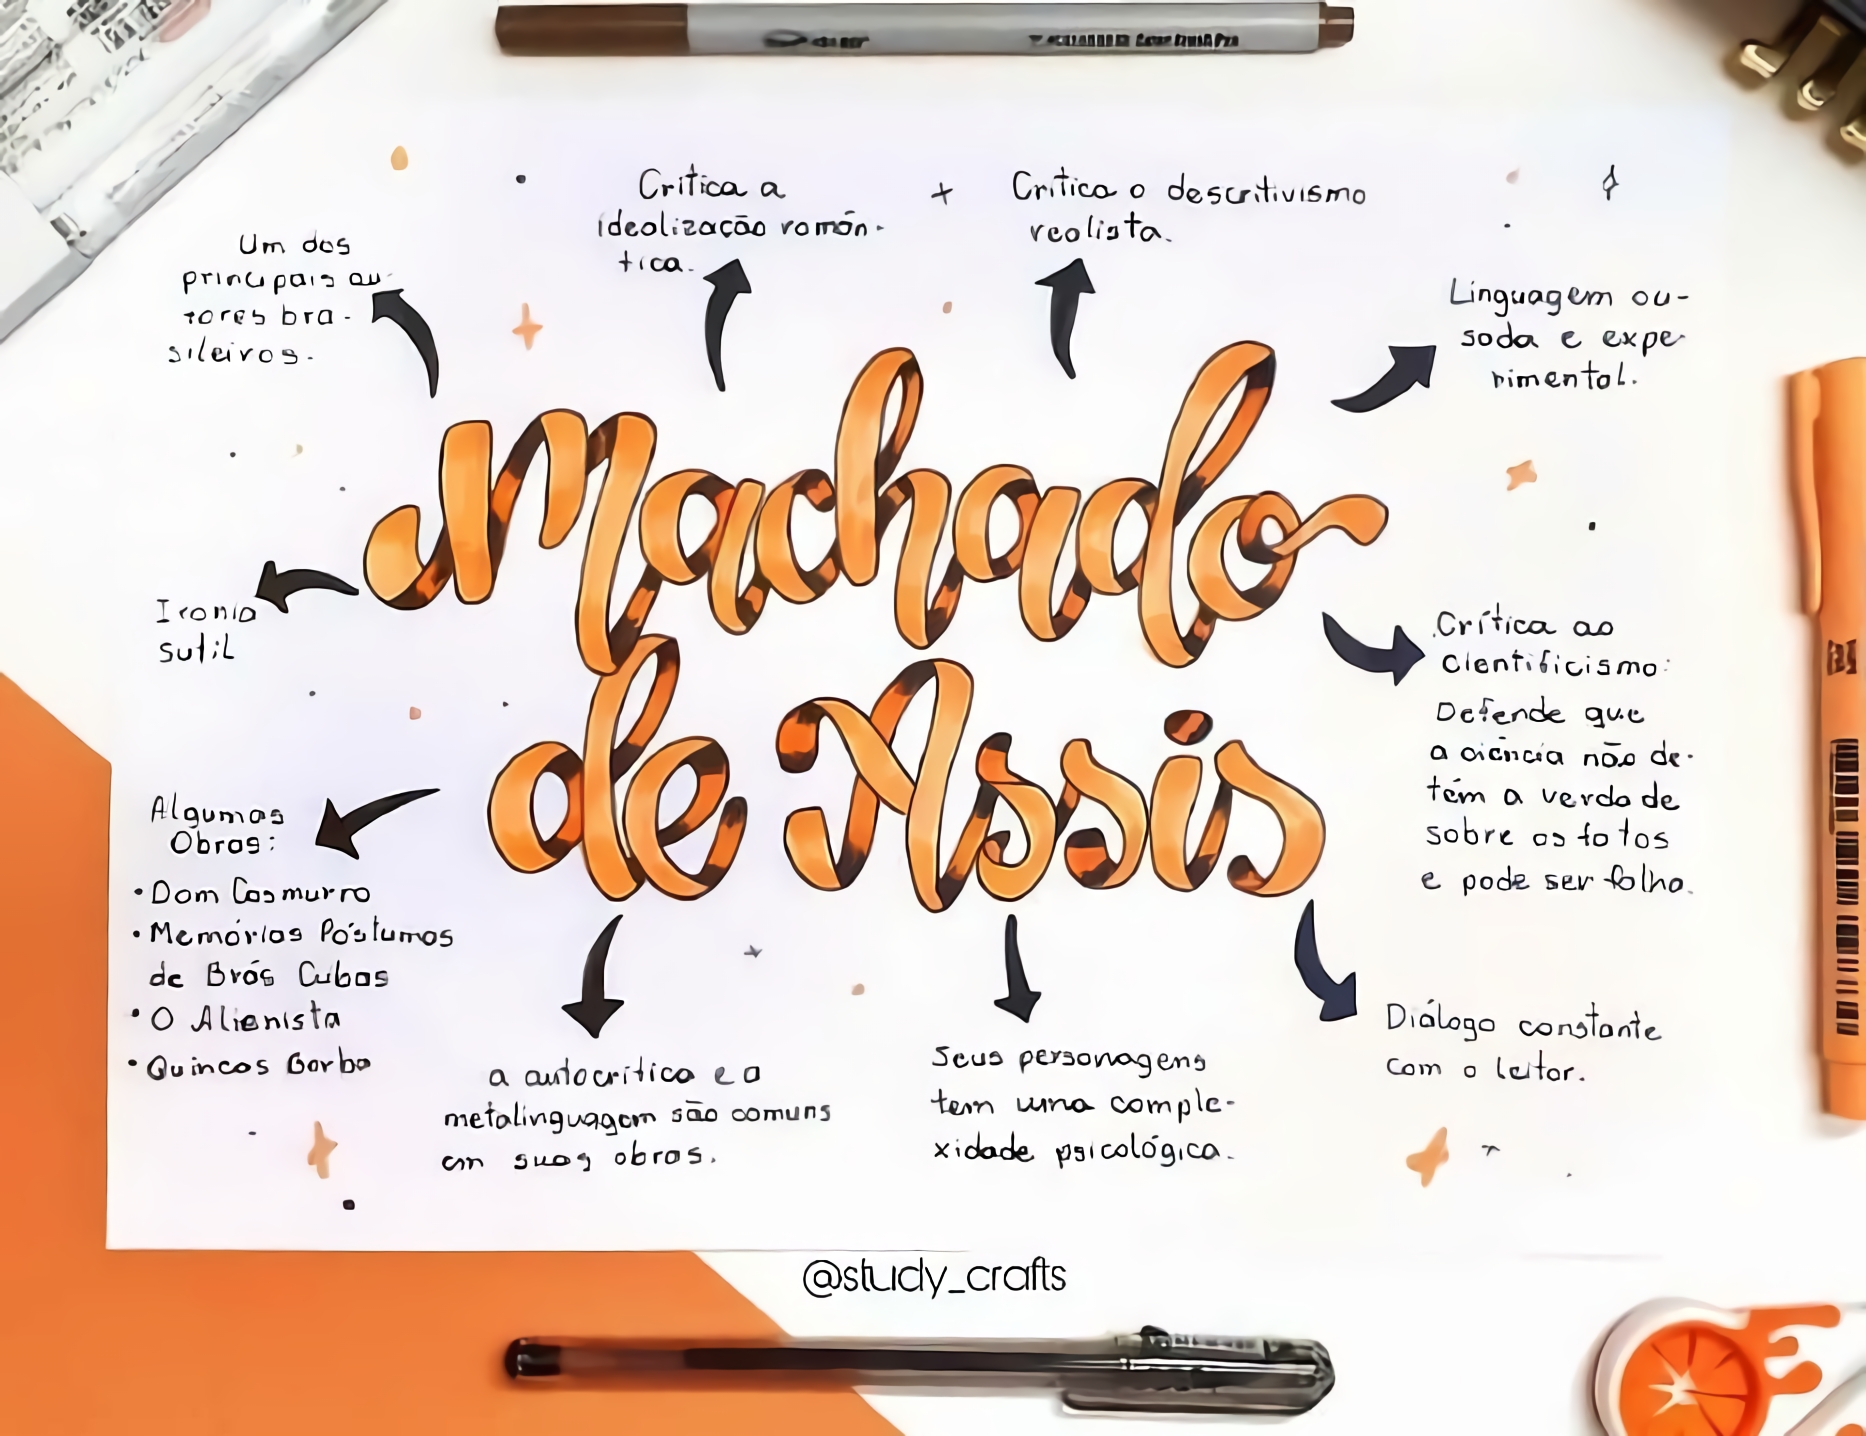 Um dos
principais au-
tores bra-
sileiros.
Crítica a
idealização român-
tica.
+
Crítica o descritivismo
realista.
Linguagem ou-
sada e expe-
rimental.
Machado
de Assis
Ironia
sutil
Crítica ao
cientificismo:
Defende que
a ciência não de-
têm a verdade
sobre os fatos
e pode ser falha.
Algumas
Obras:
• Dom Casmurro
• Memórias Póstumas
de Brás Cubas
• O Alienista
• Quincas Borba
a autocrítica e a
metalinguagem são comuns
em suas obras.
Seus personagens
tem uma comple-
xidade psicológica.
Diálogo constante
com o leitor.
@study_crafts